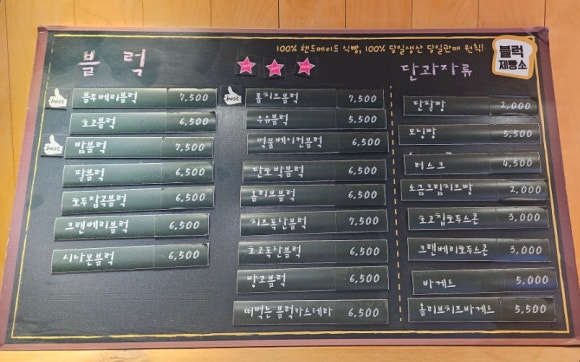 100% 핸드메이드 식빵, 100% 당일생산 당일판매 원칙!
블럭
제빵소
블럭
단과자류
best 블루베리블럭 7,500
초코블럭 6,500
best 밤블럭 7,500
팥블럭 6,500
호두잡곡블럭 6,500
크랜베리블럭 6,500
시나몬블럭 6,500
best 롤치즈블럭 7,500
우유블럭 5,500
벅품베이컨블럭 6,500
단호박블럭 6,500
올리브블럭 6,500
치즈폭탄블럭 7,500
초코폭탄블럭 6,500
망고블럭 6,500
떠먹는블럭카스테라 6,500
단팥빵 2,000
모닝빵 5,500
러스크 4,500
소금크림치즈빵 2,000
초코칩호두스콘 3,000
크랜베리호두스콘 3,000
바게트 5,000
올리브치즈바게트 5,500